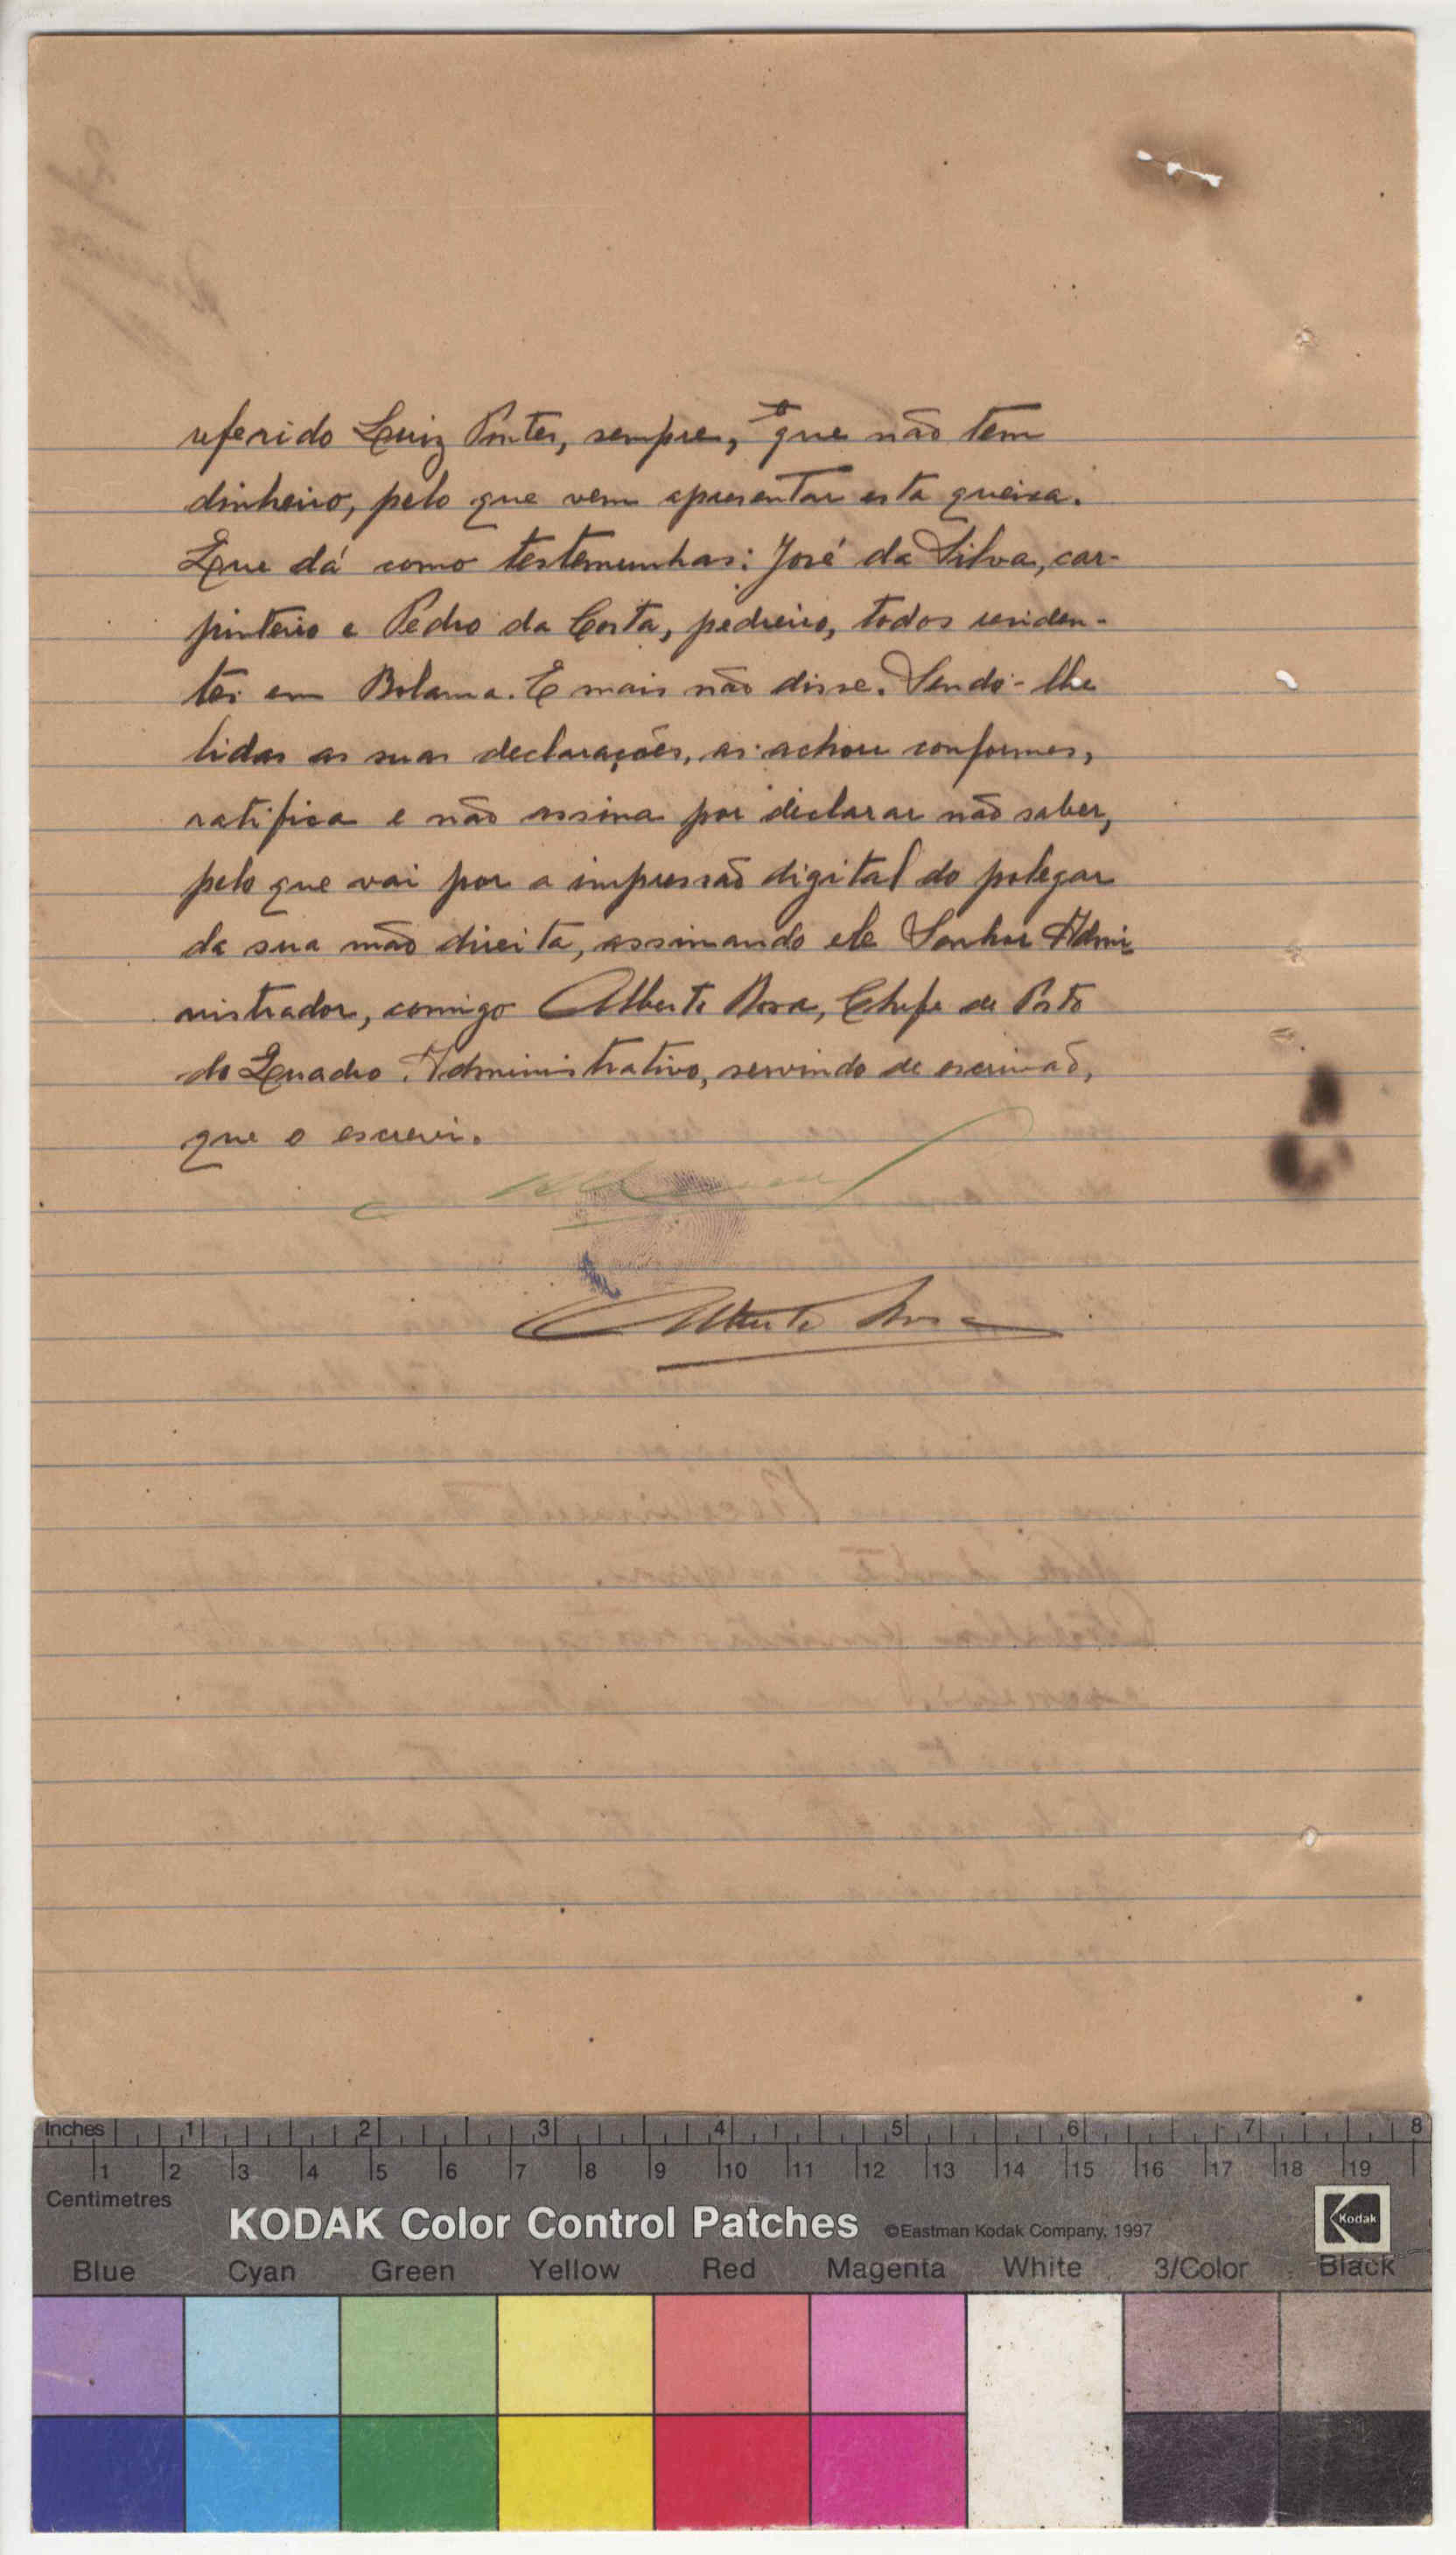 referido Luiz Pontes, sempre, que não tem
dinheiro, pelo que vem apresentar esta queixa.
Que dá como testemunhas: José da Silva, car-
pinteiro e Pedro da Costa, pedreiro, todos residen-
tes em Bolama. E mais não disse. Sendo-lhe
lidas as suas declarações, as achou conformes,
ratifica e não assina por declarar não saber,
pelo que vai por a impressão digital do polegar
da sua mão direita, assinando ele Senhor Admi-
nistrador, comigo Alberto Rosa, Chefe de Posto
do Quadro Administrativo, servindo de escrivão,
que o escrevi.
Alberto Rosa
Inches 1 2 3 4 5 6 7 8
1 2 3 4 5 6 7 8 9 10 11 12 13 14 15 16 17 18 19
Centimetres
KODAK Color Control Patches ©Eastman Kodak Company, 1997 Kodak
Blue Cyan Green Yellow Red Magenta White 3/Color Black